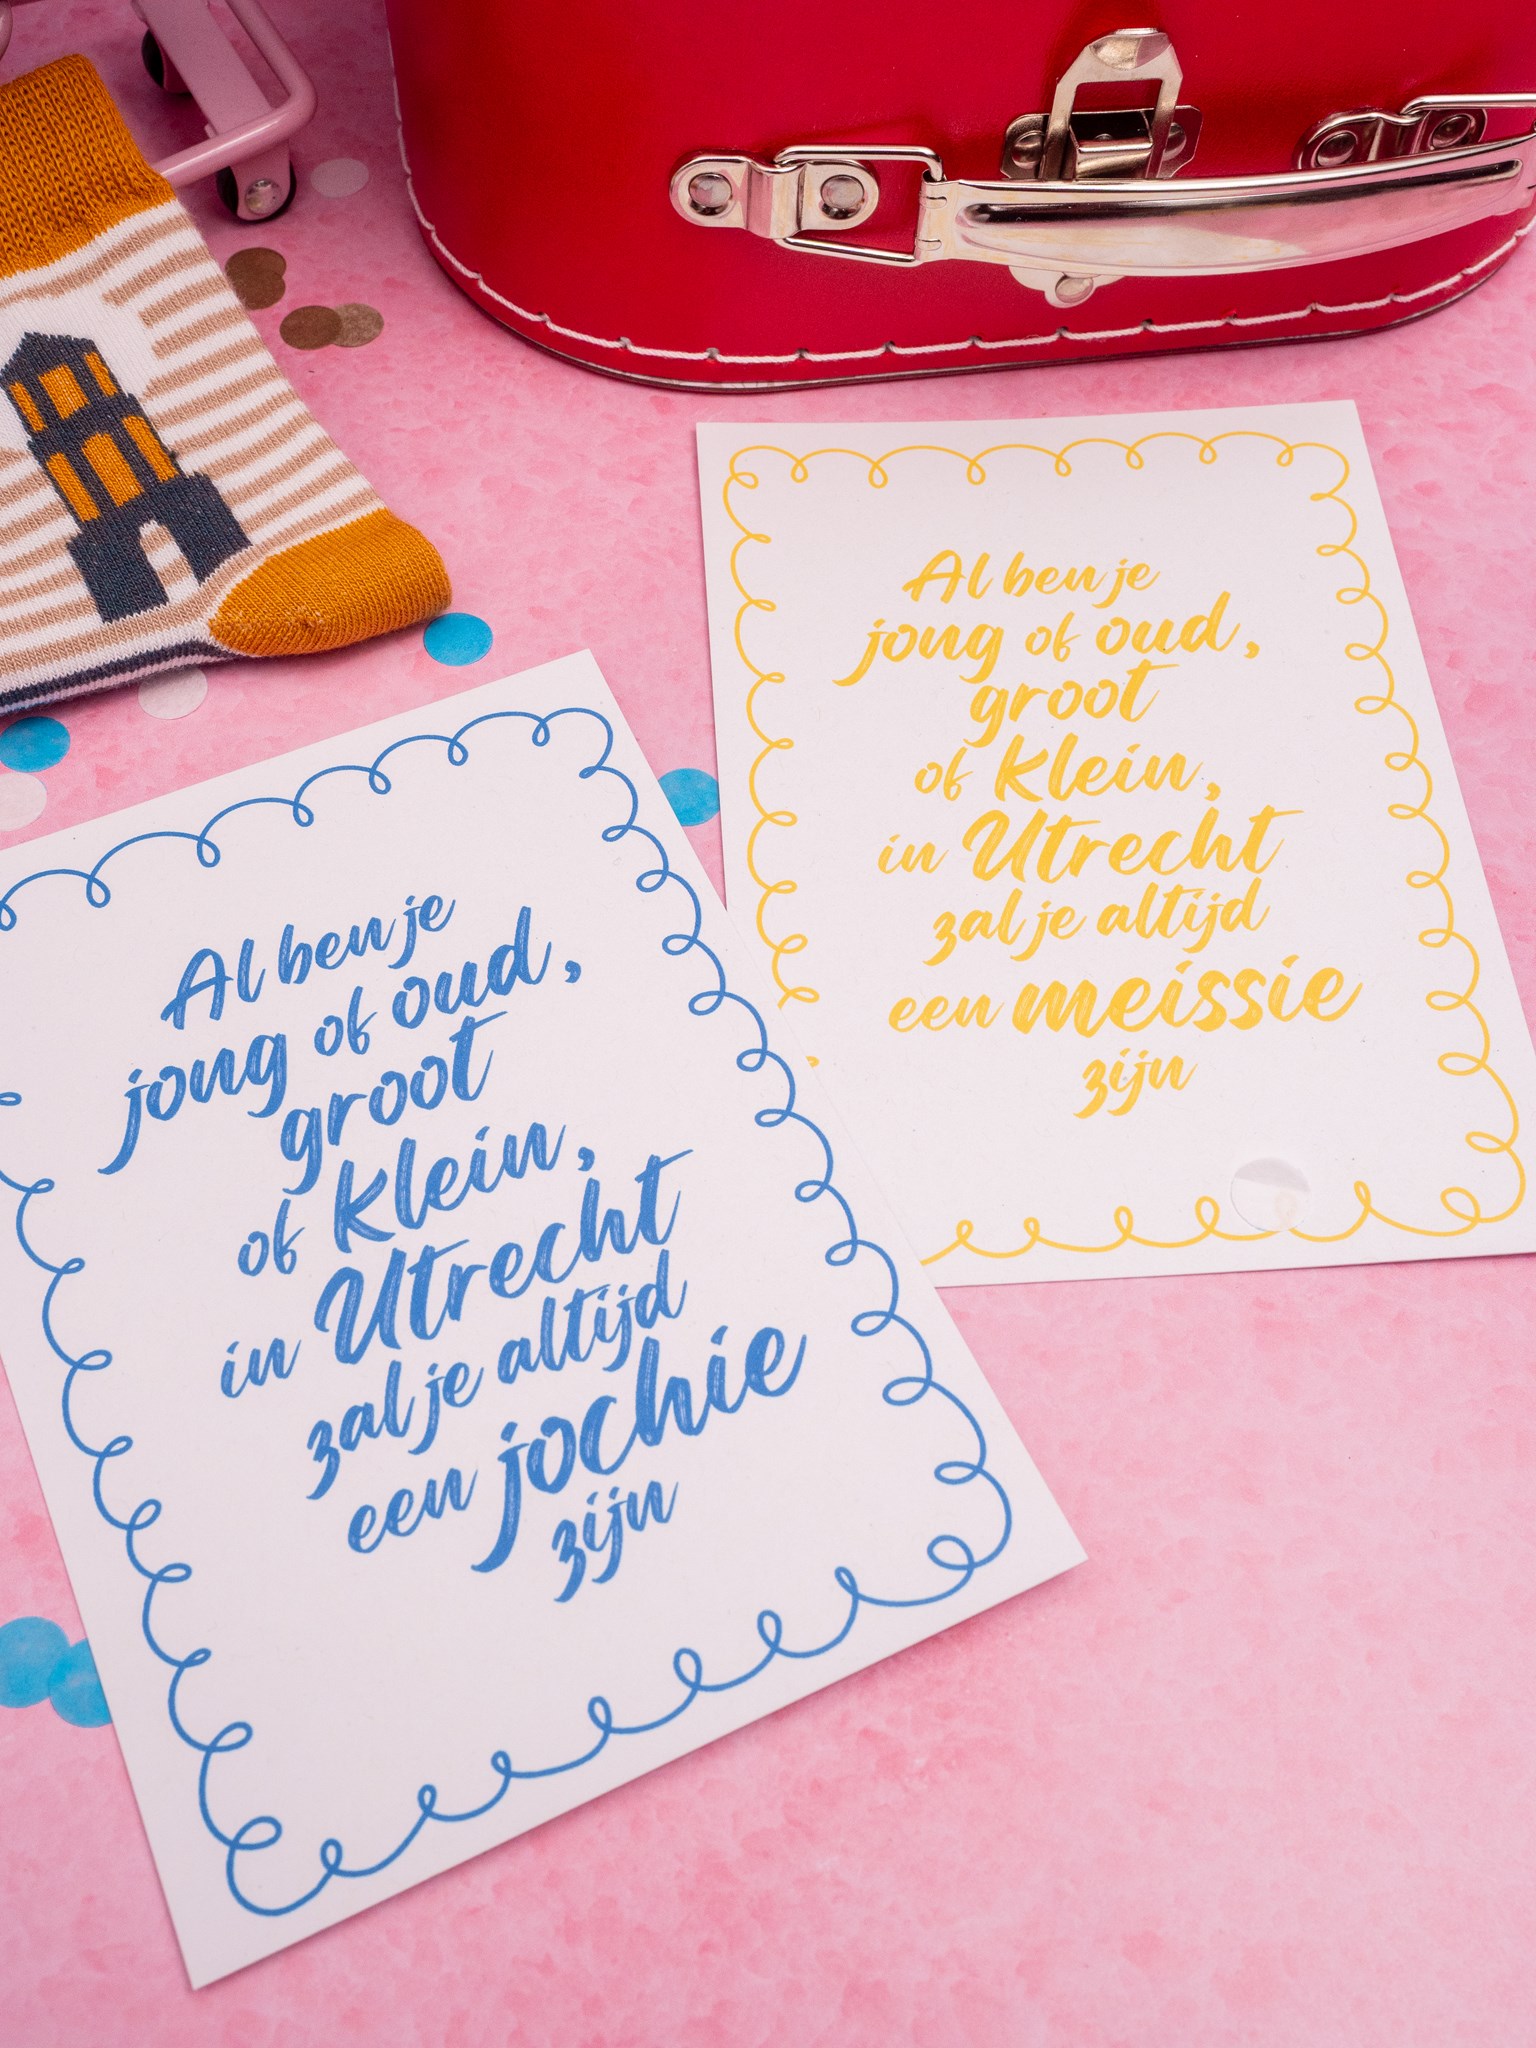 Al ben je
jong of oud,
groot
of klein,
in Utrecht
zal je altijd
een jochie
zijn
Al ben je
jong of oud,
groot
of klein,
in Utrecht
zal je altijd
een meissie
zijn